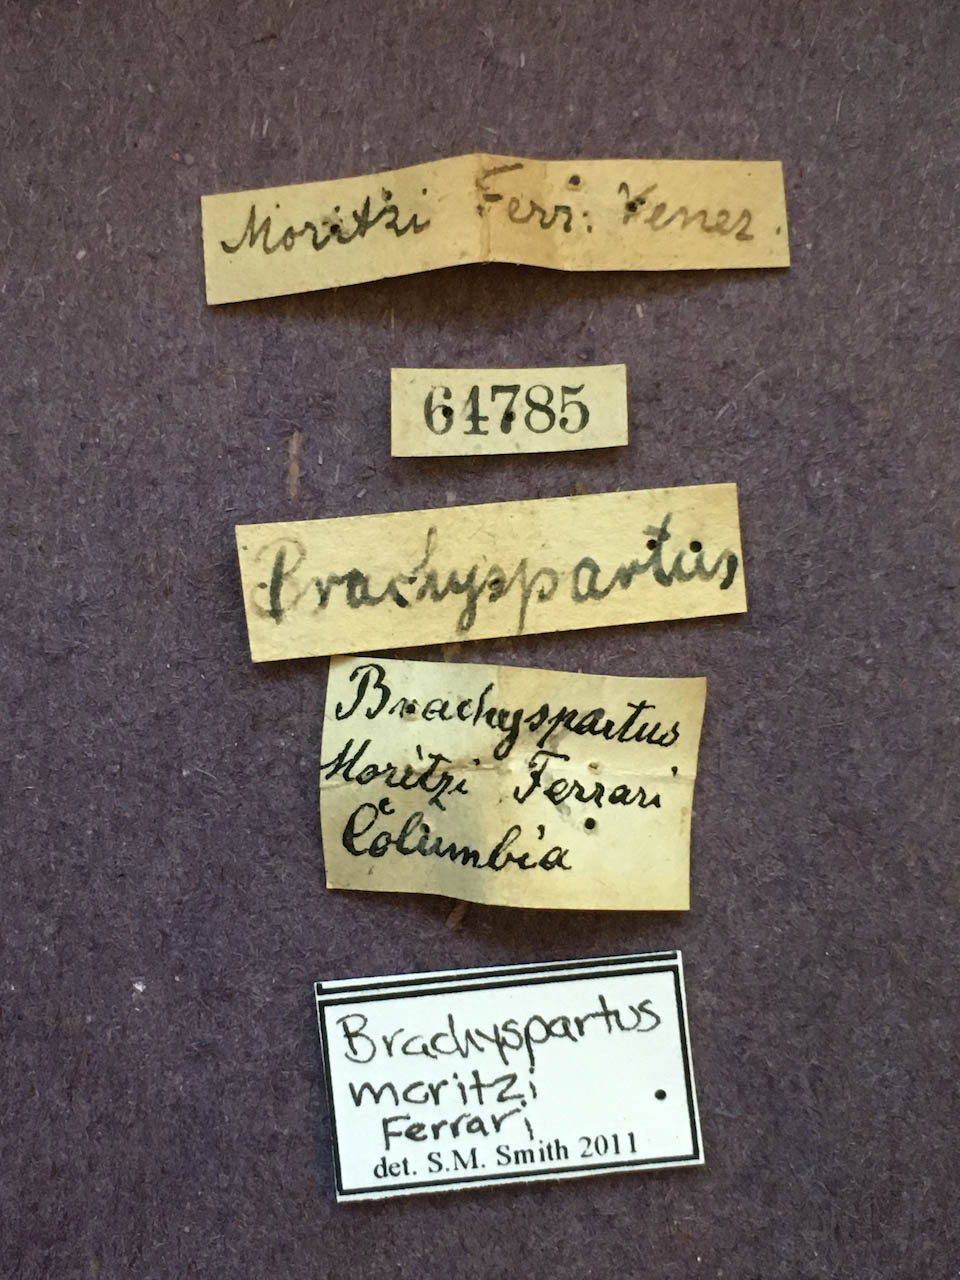 Moritzi Ferr. Venez.
64785
Brachyspartus
Brachyspartus
Moritzi Ferrari
Columbia
Brachyspartus
moritzi
Ferrari
det. S.M. Smith 2011